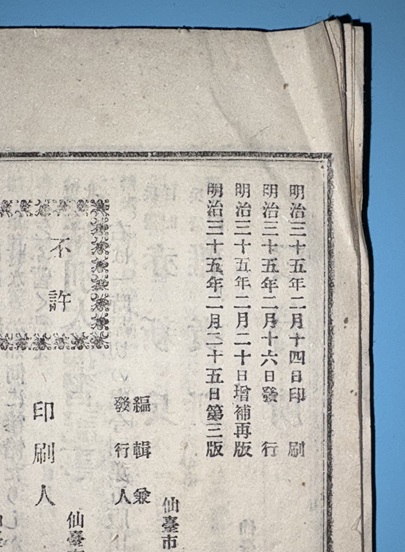 明治三十五年二月十四日印刷
明治三十五年二月十六日發行
明治三十五年二月二十日增補再版
明治三十五年二月二十五日第三版
仙臺市
編輯兼
發行人
仙臺
印刷人
不許